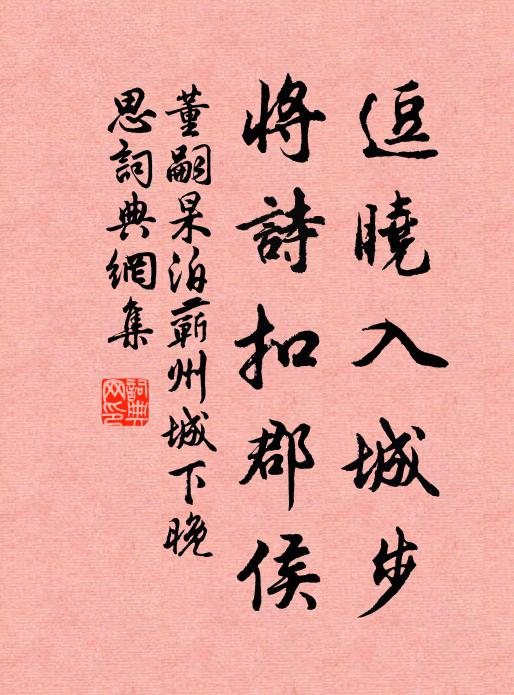 逗曉入城步
將詩扣郡侯
董嗣杲泊蘄州城下晚
思詞典網集
詞典网印